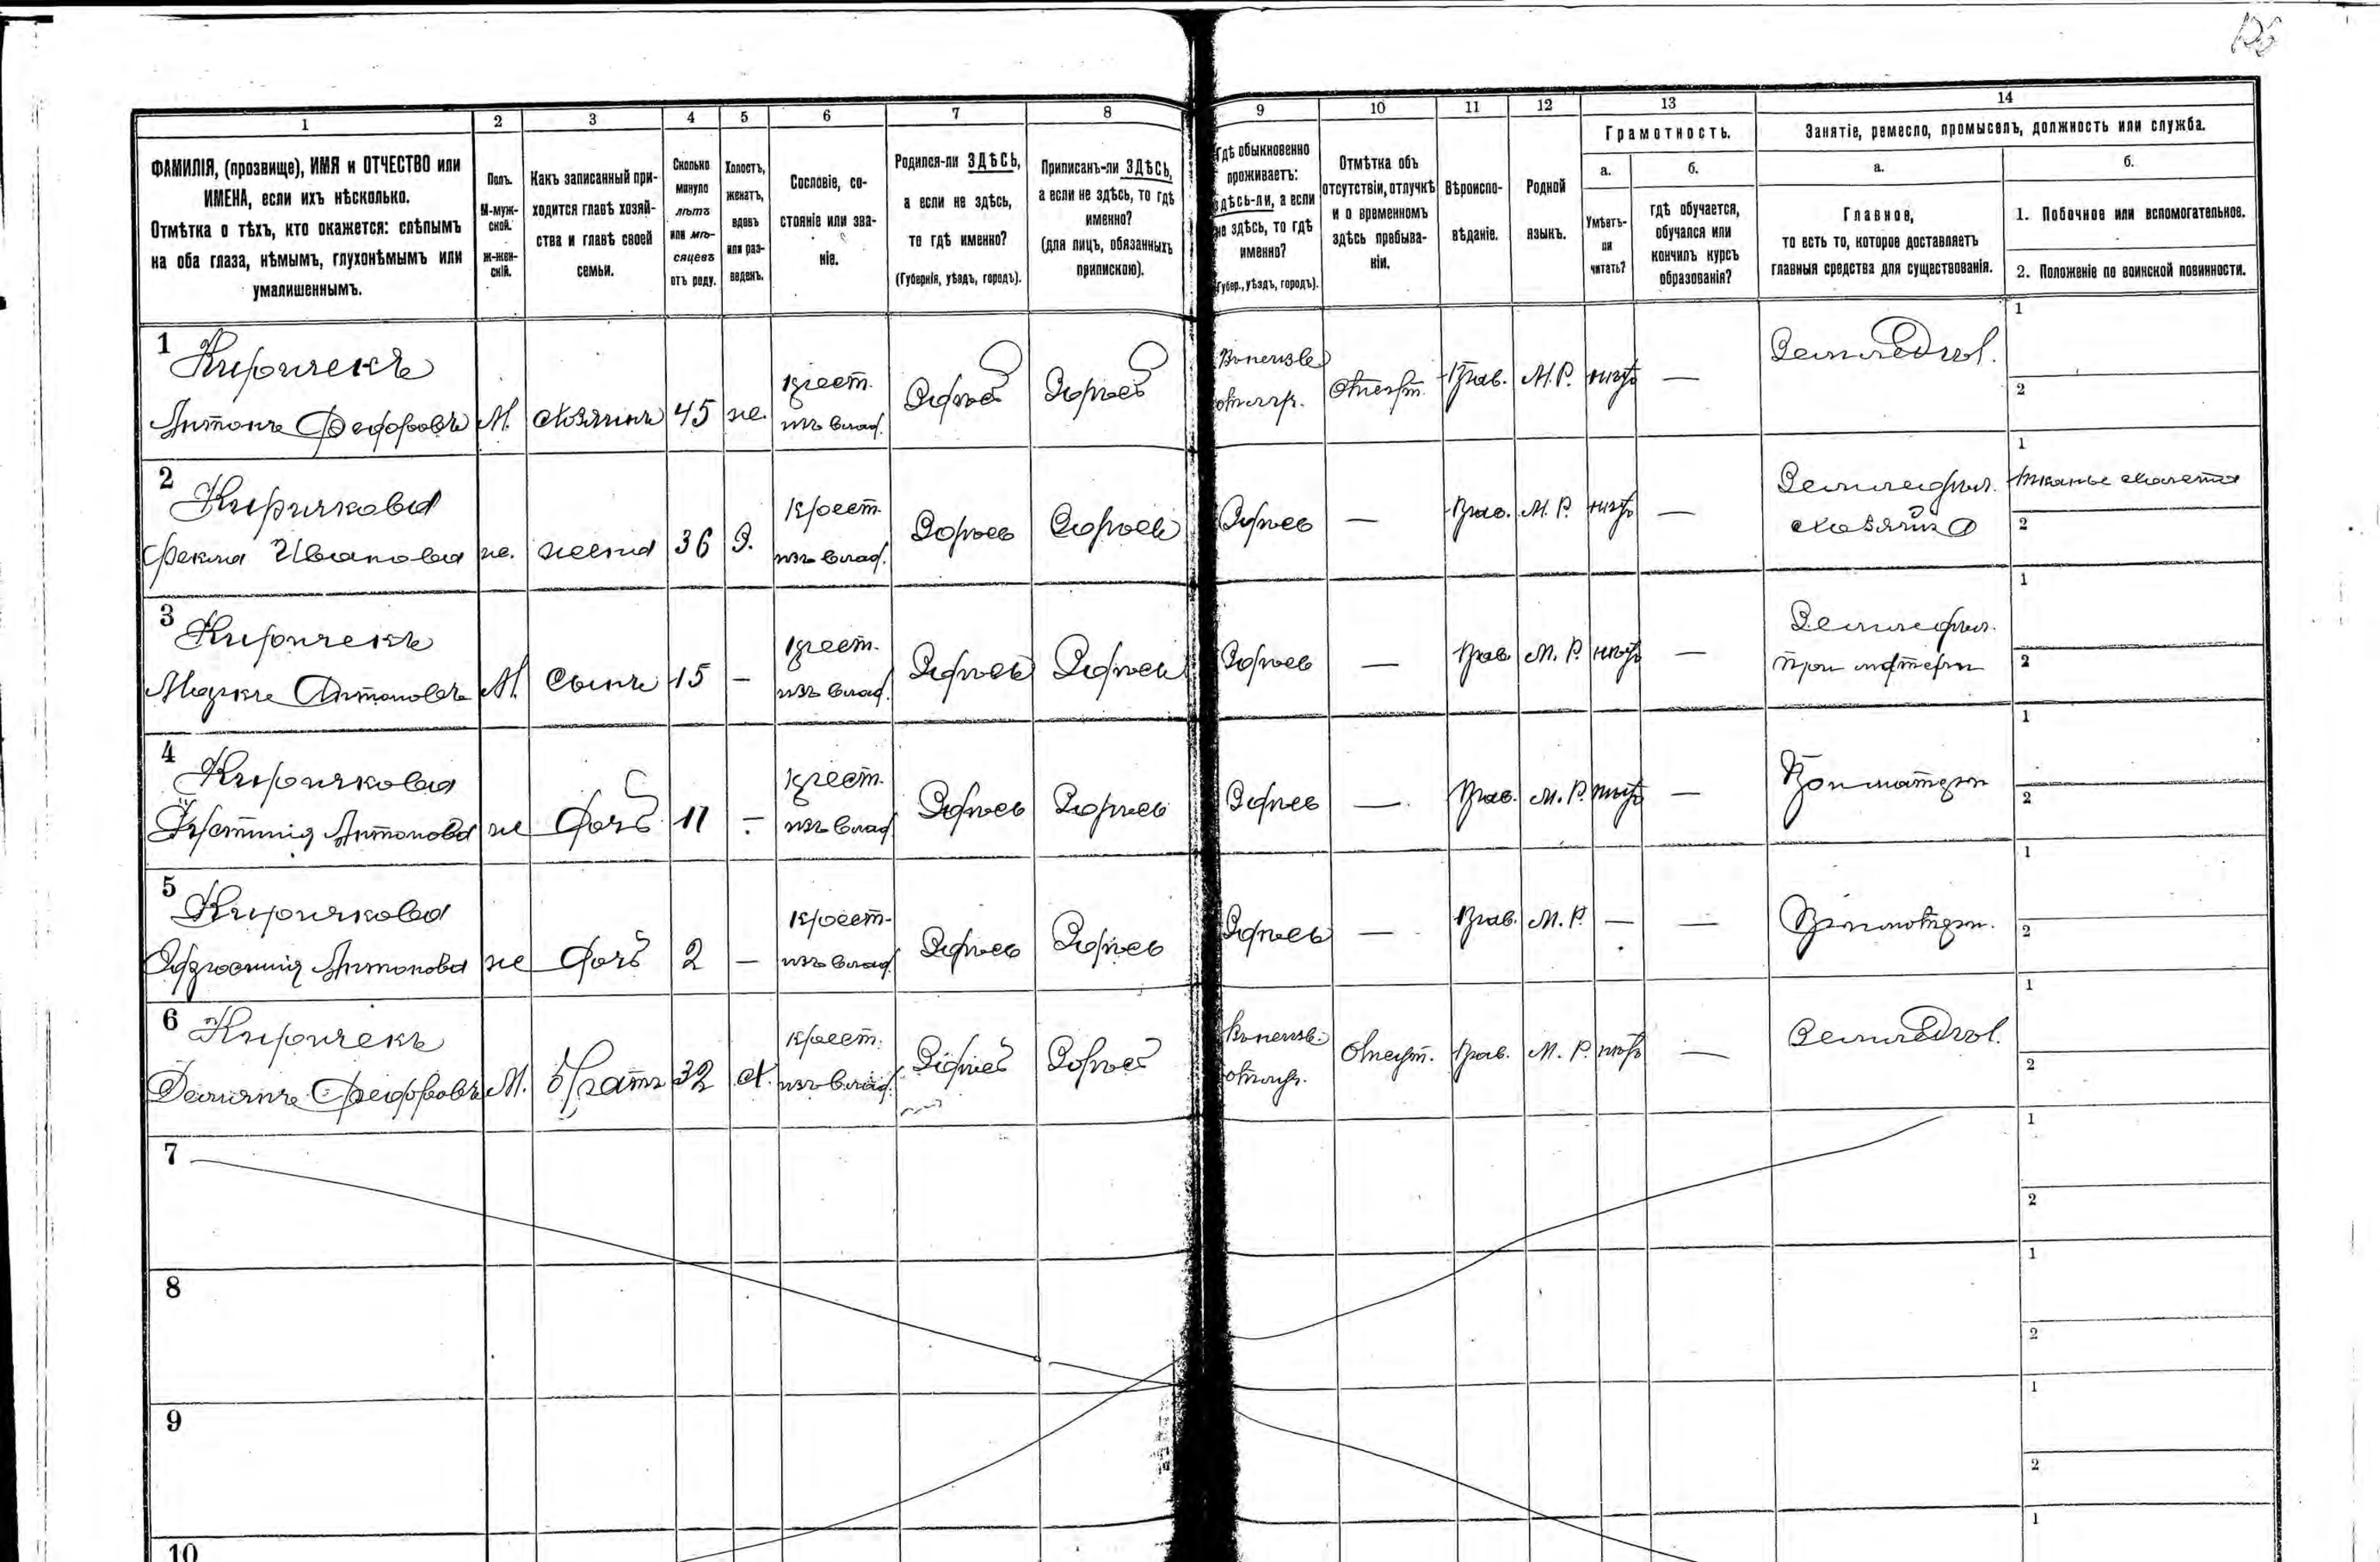 1 2 3 4 5 6 7 8 9 10 11 12 13 14
ФАМИЛІЯ, (прозвище), ИМЯ и ОТЧЕСТВО или
ИМЕНА, если ихъ нѣсколько.
Отмѣтка о тѣхъ, кто окажется: слѣпымъ
на оба глаза, нѣмымъ, глухонѣмымъ или
умалишеннымъ.
Полъ.
М-муж-
ской.
ж-жен-
скій.
Какъ записанный при-
ходится главѣ хозяй-
ства и главѣ своей
семьи.
Сколько
минуло
лѣтъ
или мѣ-
сяцевъ
отъ роду.
Холостъ,
женатъ,
вдовъ
или раз-
веденъ.
Сословіе, со-
стояніе или зва-
ніе.
Родился-ли ЗДѢСЬ,
а если не здѣсь,
то гдѣ именно?
(Губернія, уѣздъ, городъ).
Приписанъ-ли ЗДѢСЬ,
а если не здѣсь, то гдѣ
именно?
(для лицъ, обязанныхъ
припискою).
Гдѣ обыкновенно
проживаетъ:
здѣсь-ли, а если
не здѣсь, то гдѣ
именно?
(Губер., уѣздъ, городъ).
Отмѣтка объ
отсутствіи, отлучкѣ
и о временномъ
здѣсь пребыва-
ніи.
Вѣроиспо-
вѣданіе.
Родной
языкъ.
Грамотность.
а.
Умѣетъ-
ли
читать?
б.
гдѣ обучается,
обучался или
кончилъ курсъ
образованія?
Занятіе, ремесло, промыселъ, должность или служба.
а.
Главное,
то есть то, которое доставляетъ
главныя средства для существованія.
б.
1. Побочное или вспомогательное.
2. Положеніе по воинской повинности.
1 Киричекъ
Антонъ Федоровъ М. хозяинъ 45 ж. крест. изъ влад. Здѣсь Здѣсь
отсут. Прав. М. Р. нѣтъ — Земледѣл. 1
2
2 Киричкова
Фекла Иванова ж. жена 36 З. крест. изъ влад. Здѣсь Здѣсь Здѣсь — Прав. М. Р. нѣтъ — Земледѣл.
хозяйка
1 тканье холста
2
3 Киричекъ
Марко Антоновъ М. сынъ 15 — крест. изъ влад. Здѣсь Здѣсь Здѣсь — Прав. М. Р. нѣтъ — Земледѣл.
при матери
1
2
4 Киричкова
Антонова ж дочь 11 — крест. изъ влад. Здѣсь Здѣсь Здѣсь — Прав. М. Р. нѣтъ — При матери
1
2
5 Киричкова
Антонова ж дочь 2 — крест. изъ влад. Здѣсь Здѣсь Здѣсь — Прав. М. Р. — — При матери.
1
2
6 Киричекъ
Демьянъ Федоровъ М. братъ 32 х. крест. изъ влад. Здѣсь Здѣсь
отсут. Прав. М. Р. нѣтъ — Земледѣл.
1
2
7 1
2
8 1
2
9 1
2
10 1